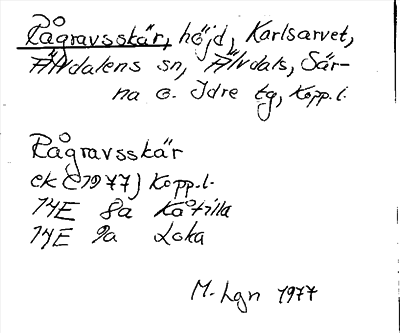 Rågravsskär, höjd, Karlsarvet,
Älvdalens sn, Älvdals, Sär-
na o. Idre tg, Kopp.l.
Rågravsskär
ek (1977) Kopp.l.
14E 8a Kåtilla
14E 9a Loka
M. Lgn 1977